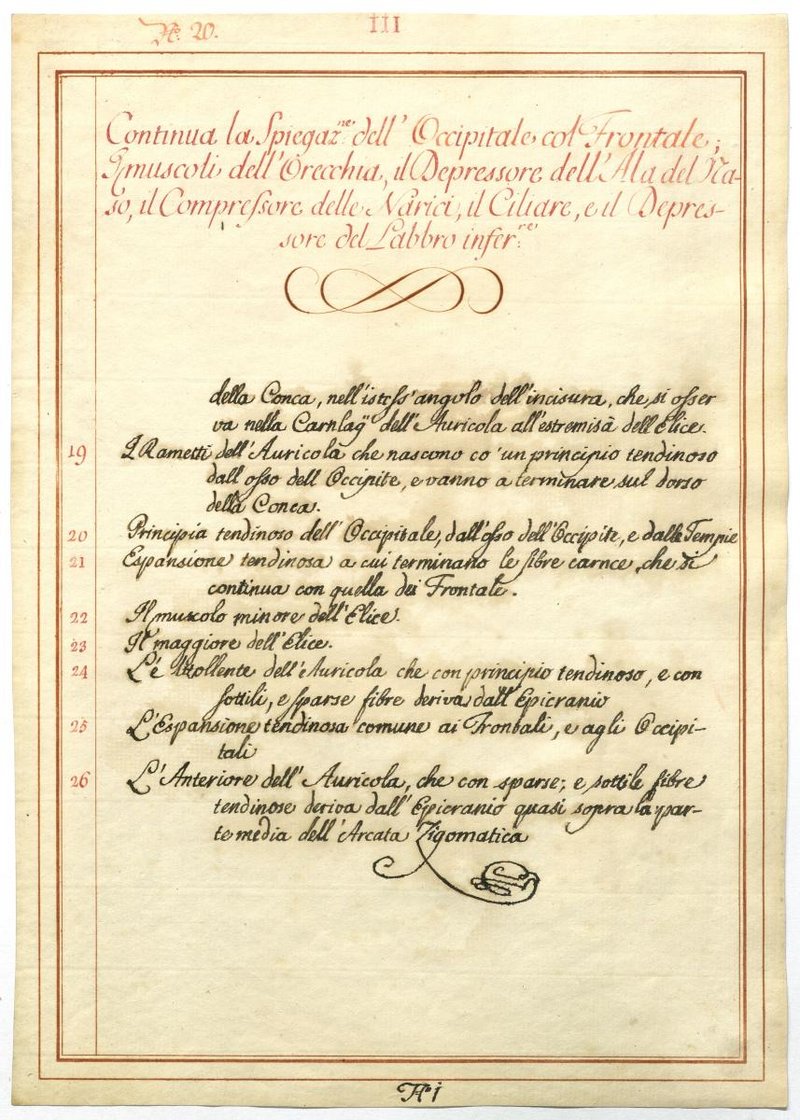 N.º 20.
III
Continua la Spiegaz.ne dell' Occipitale col Frontale;
I muscoli dell'Orecchia, il Depressore dell'Ala del Na-
so, il Compressore delle Narici, il Ciliare, e il Depres-
sore del Labbro infer.re
della Conca, nell'istess'angolo dell'incisura, che si osser
va nella Cartilag.e dell'Auricola all'estremità dell'Elice.
19 I Rametti dell'Auricola che nascono co' un principio tendinoso
dall'osso dell'Occipite, e vanno a terminare sul dorso
della Conca.
20 Principia tendinoso dell'Occipitale, dall'osso dell'Occipite, e dalle Tempie
21 Espansione tendinosa a cui terminano le fibre carnee, che si
continua con quella dei Frontale.
22 Il muscolo minore dell'Elice.
23 Il maggiore dell'Elice.
24 L'Attollente dell'Auricola che con principio tendinoso, e con
sottili, e sparse fibre deriva dall'Epicranio
25 L'Espansione tendinosa comune ai Frontali, e agli Occipi-
tali
26 L'Anteriore dell'Auricola, che con sparse; e sottile fibre
tendinose deriva dall'Epicranio quasi sopra la par-
te media dell'Arcata Zigomatica